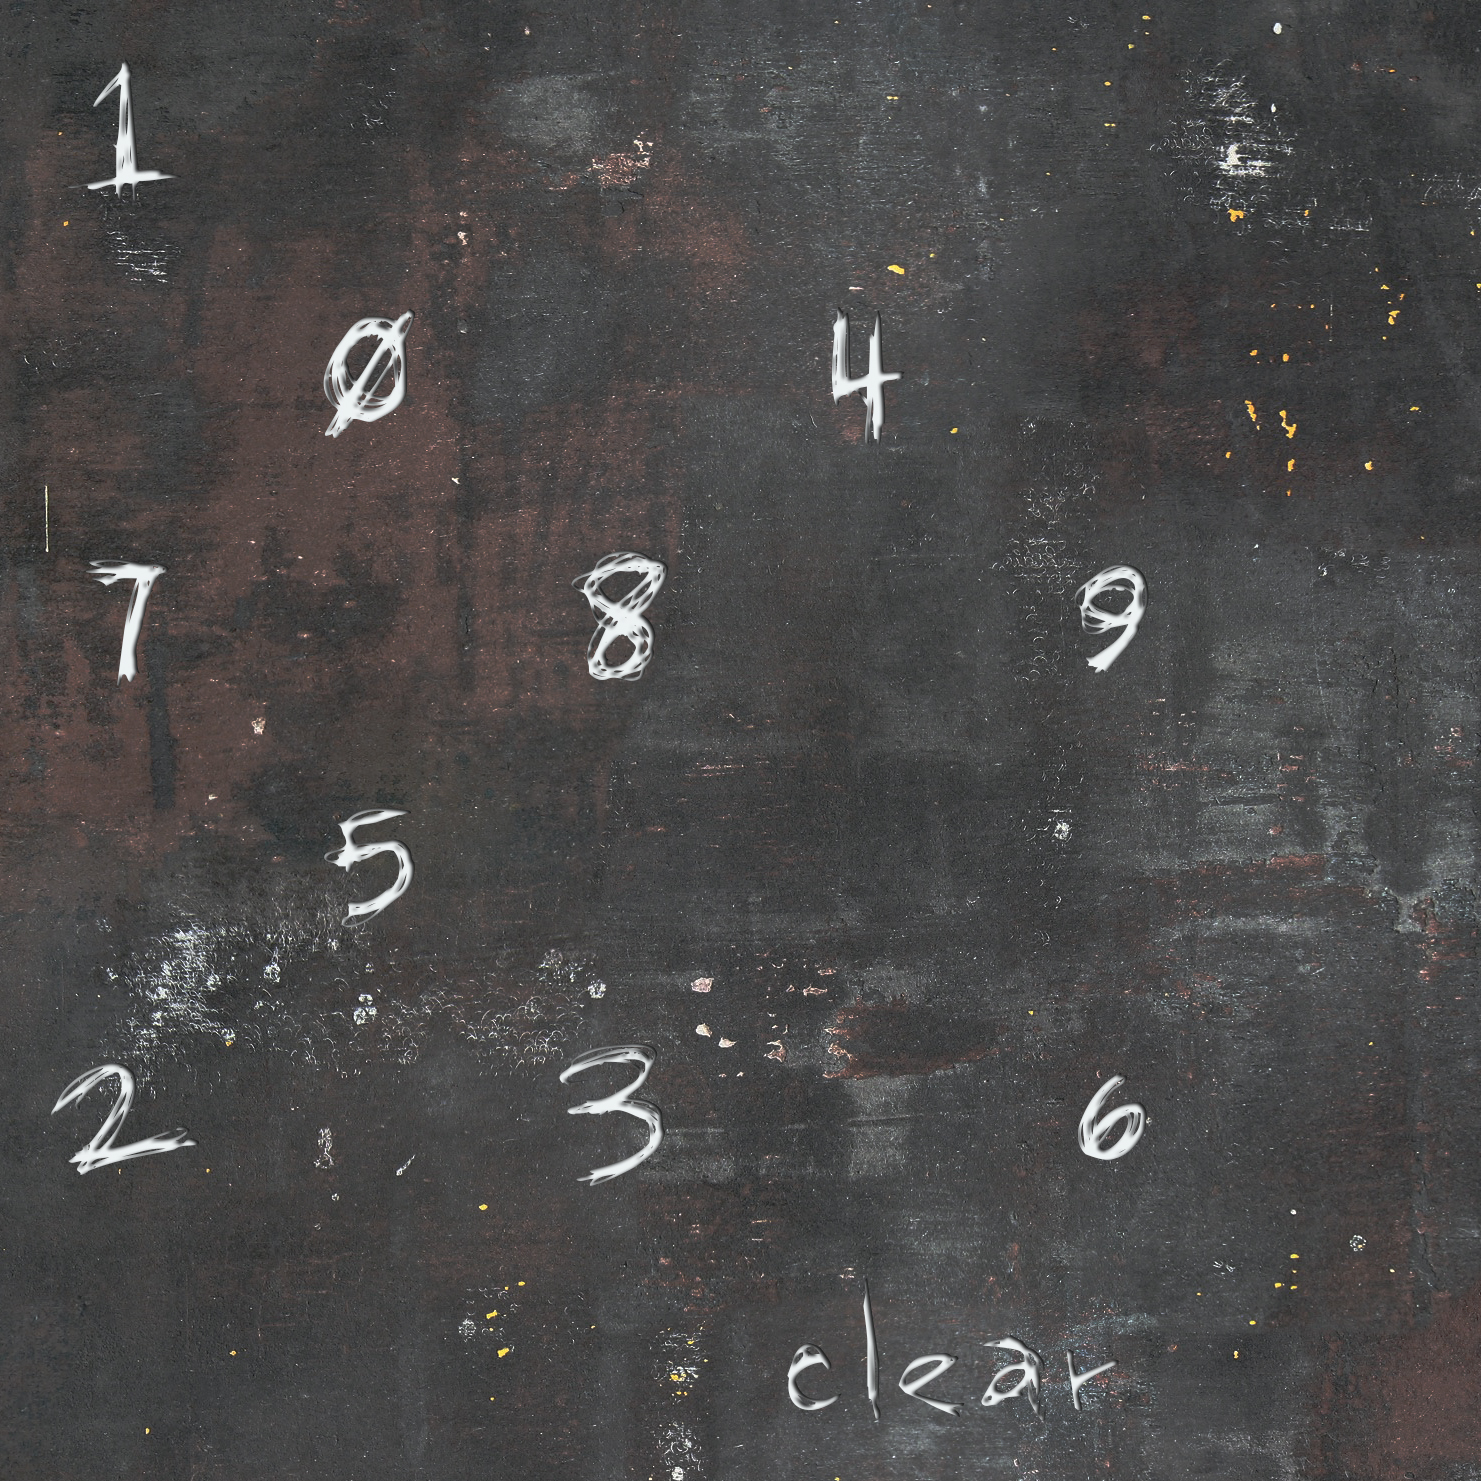 1
0 4
7 8 9
5
2 3 6
clear